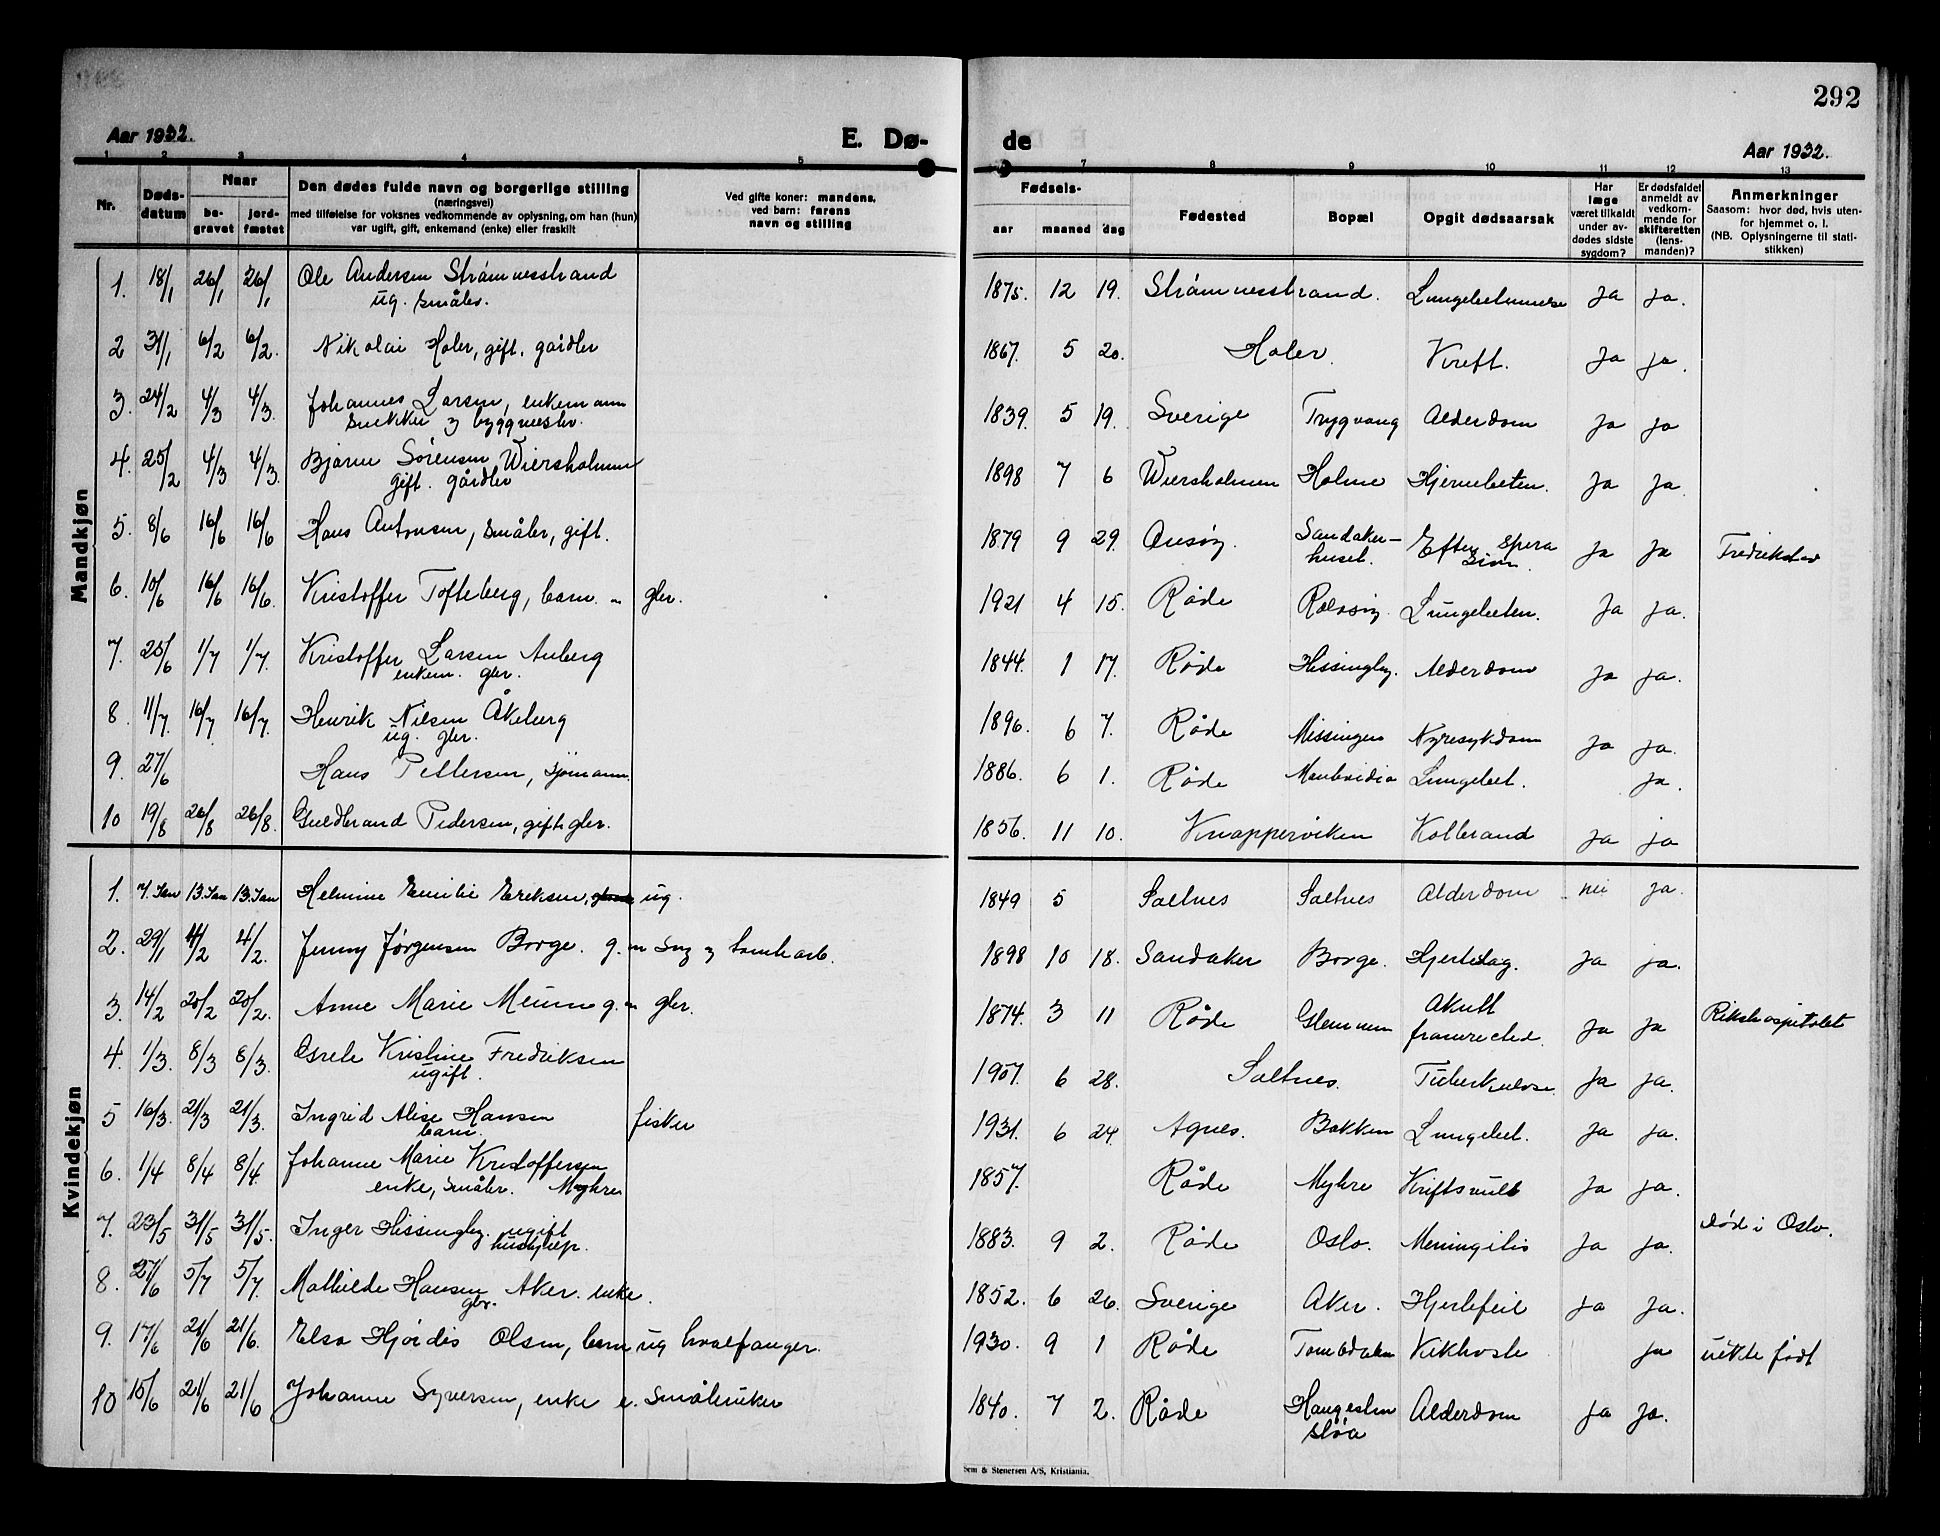 292
Aar 1932. E. Dø- de Aar 1932.
1 2 3 4 5 7 8 9 10 11 12 13
Nr. Døds-datum Naar be-gravet jord-fæstet Den dødes fulde navn og borgerlige stilling (næringsvei) med tilføielse for voksnes vedkommende av oplysning, om han (hun) var ugift, gift, enkemand (enke) eller fraskilt Ved gifte koner: mandens, ved barn: farens navn og stilling Fødsels- aar maaned dag Fødested Bopæl Opgit dødsaarsak Har læge været tilkaldt under av-dødes sidste sygdom? Er dødsfaldet anmeldt av vedkom-mende for skifteretten (lens-manden)? Anmerkninger Saasom: hvor død, hvis uten-for hjemmet o. l. (NB. Oplysningerne til stati-stikken)
Mandkjøn
1. 18/1 26/1 26/1 Ole Andersen Strømnesstrand 1875. 12 19. Strømnesstrand. Lungebetennelse ja ja.
ug. småbr.
2 31/1 6/2 6/2. Nikolai Holer, gift, gårdbr 1867. 5 20. Holer. Kreft. ja ja.
3. 24/2 4/3 4/3. Johannes Larsen, enkemann 1839. 5 19. Sverige Trygvang Alderdom ja ja
snekker og byggmester.
4. 25/2 4/3 4/3. Bjarne Sørensen Wiersholmen 1898 7 6 Wiersholmen Holme Hjernebeten. ja ja.
gift. gårdbr
5. 8/6 16/6 16/6 Hans Antonsen, småbr, gift. 1879 9 29. Onsøy. Sandaker-huset. Efter opera sion. ja ja Fredrikstad
6. 10/6 16/6 16/6. Kristoffer Tofteberg, barn. " gbr. 1921 4 15. Råde Rolvsøy Lungebeten. ja ja.
7. 25/6 1/7 1/7. Kristoffer Larsen Auberg 1844. 1 17. Råde Hissingby. Alderdom ja ja.
enkem. gbr.
8. 11/7. 16/7 16/7. Henrik Nilsen Åkeberg 1896. 6 7. Råde Missingen Nyresykdom ja ja.
ug. gbr.
9. 27/6 Hans Pettersen, sjømann. 1886. 6 1. Råde Montevidio Lungebet. ja.
10 19/8 26/8 26/8. Guldbrand Pedersen, gift gbr. 1856. 11 10. Knapperviken Kolbrand ja ja
Kvindekjøn
1. 7. Jan 13. Jan 13. Jan Helmine Emilie Eriksen, ug. 1849 5 Saltnes Saltnes Alderdom nei ja.
2. 29/1 4/2 4/2. Jenny Jørgensen Borge. g. m Sag og tomtearb. 1898 10 18. Sandaker Borge. Hjerteslag. ja ja.
3. 14/2 20/2 20/2. Anne Marie Meum g. m gbr. 1874. 3 11 Råde Glemmen Akutt ja ja Rikshospitalet
4. 1/3. 8/3 8/3. Grete Kristine Fredriksen 1907. 6 28. Saltnes. Tuberkulose ja ja.
ugift.
5 16/3. 21/3 21/3. Ingrid Alise Hansen fisker 1931. 6 24. Agnes. Bakken Lungebet. ja ja.
barn.
6. 1/4 8/4 8/4. Johanne Marie Kristoffersen 1857. Råde Myhre Kreftsvulst ja ja.
enke, småbr. Myhre
7. 23/5 31/5 31/5. Inger Hissingby. ugift 1883. 9 2. Råde Oslo. Meningitis ja ja. død i Oslo.
hushjelp.
8. 27/6 5/7 5/7. Mathilde Hansen Aker. enke. 1852. 6 26. Sverige Aker. Hjertefeil ja ja.
gbr.
9. 17/6 21/6 21/6. Elsa Hjørdis Olsen, barn ug hvalfanger. 1930. 9 1 Råde Tombdalen Kikhoste ja uekte født
10 15/6 21/6 21/6 Johanne Syversen, enke e. Småbruker 1840. 7 2. Råde Haugesten Alderdom ja ja.
Sem & Stenersen A/S, Kristiania.